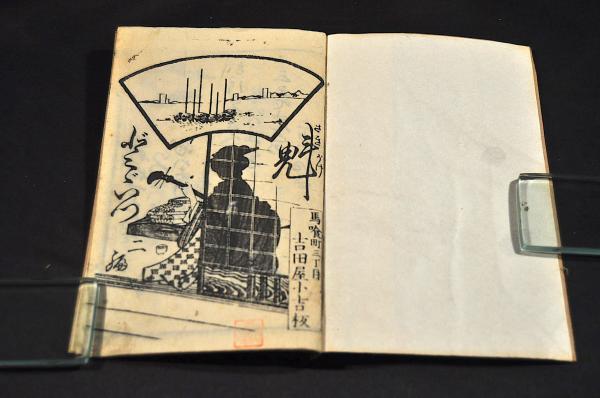 魁
さきがけ
どゞいつ
二編
馬喰町三丁目
吉田屋小吉板